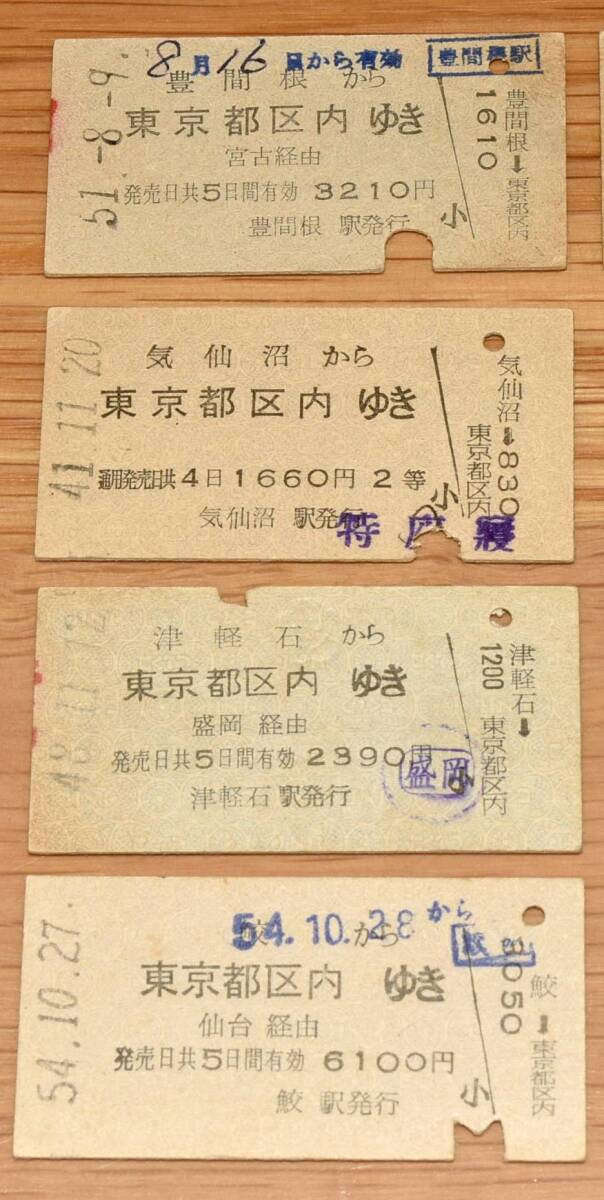 8月16日から有効
豊間根駅
豊間根から
東京都区内ゆき
宮古経由
発売日共5日間有効 3210円
豊間根 駅発行
51.-8.-9.
小
豊間根→東京都区内
1610
気仙沼から
東京都区内ゆき
通用発売日共4日1660円2等
気仙沼 駅発行
41.11.20
小
気仙沼→東京都区内
830
津軽石から
東京都区内ゆき
盛岡経由
発売日共5日間有効 2390円
津軽石駅発行
盛岡
小
津軽石→東京都区内
1200
54.10.28から
鮫から
東京都区内ゆき
仙台経由
発売日共5日間有効 6100円
鮫 駅発行
54.10.27.
小
鮫→東京都区内
3050